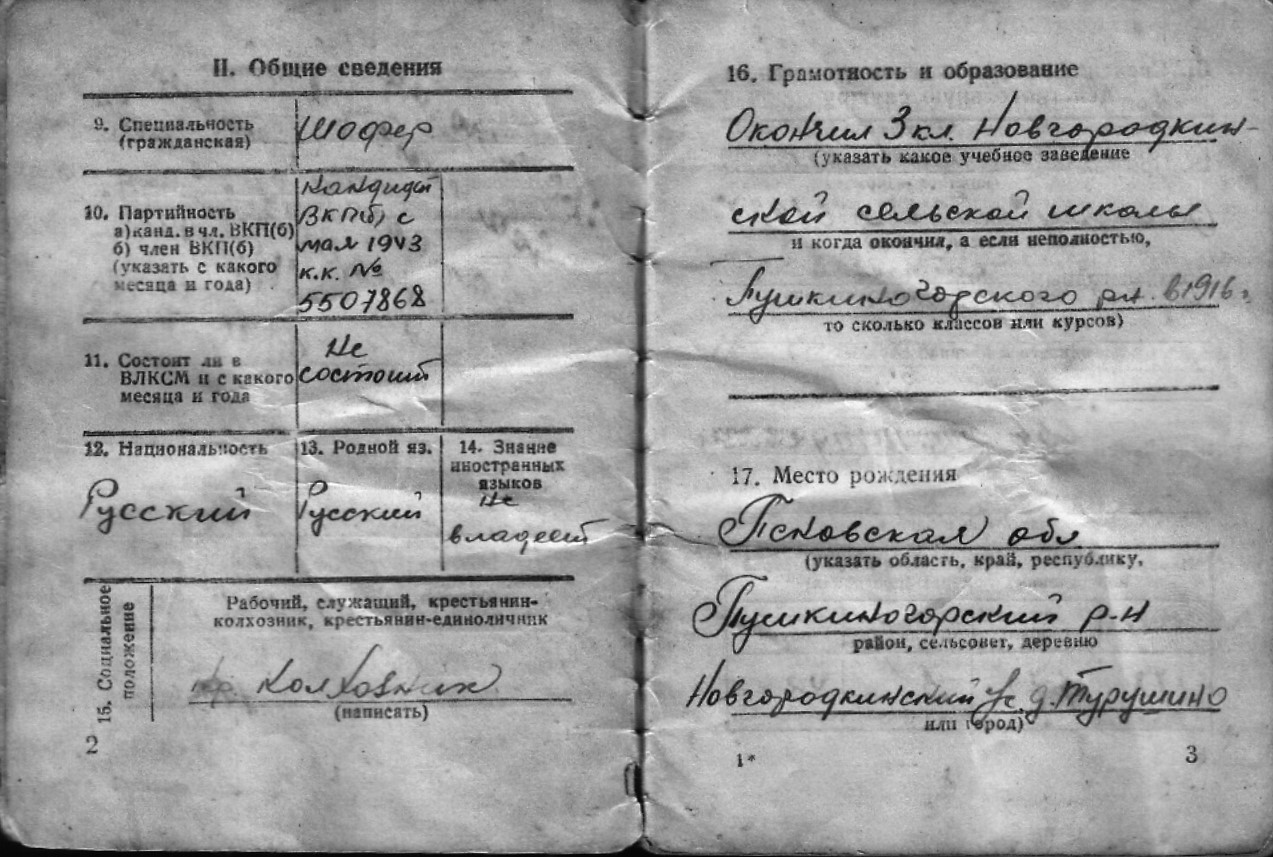 II. Общие сведения
9. Специальность
(гражданская)
Шофер
10. Партийность
а) канд. в чл. ВКП(б)
б) член ВКП(б)
(указать с какого
месяца и года)
кандидат
ВКП(б) с
мая 1943
к.к. №
5507868
11. Состоит ли в
ВЛКСМ и с какого
месяца и года
Не
состоит
12. Национальность
Русский
13. Родной яз.
Русский
14. Знание
иностранных
языков
Не
владеет
15. Социальное
положение
Рабочий, служащий, крестьянин-
колхозник, крестьянин-единоличник
кр. колхозник
(написать)
2
16. Грамотность и образование
Окончил 3 кл. Новгородкин-
(указать какое учебное заведение
ской сельской школы
и когда окончил, а если неполностью,
Пушкиногорского рн. в 1916 г
то сколько классов или курсов)
17. Место рождения
Псковская обл
(указать область, край, республику,
Пушкиногорский р-н
район, сельсовет, деревню
Новгородкинский с/с д. Турушино
или город)
1*
3